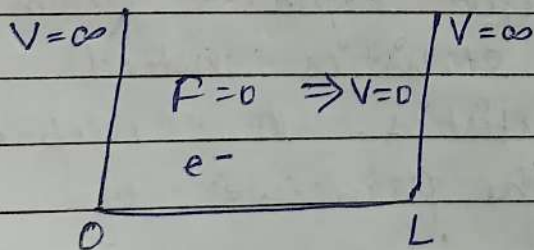 V=∞ V=∞
F=0 ⇒V=0
e-
0 L